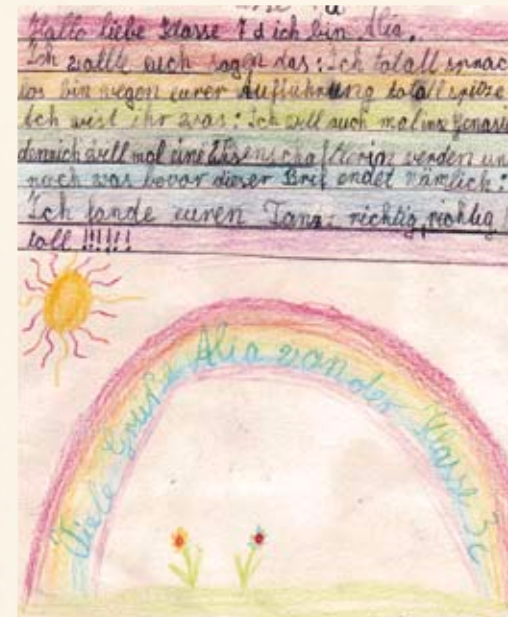 Hallo liebe Klasse 7d ich bin Alia.
Ich wollte euch sagen das: Ich totall sprach
los bin wegen eurer Aufführung totall spitze
Ich wist ihr was: Ich will auch mal ins
denn ich will mal eine Wisenschaftlerin werden un
noch was bevor dieser Brif endet nämlich:
Ich fande euren Tanz richtig, richtig
toll !!!!!!
Viele Grüße Alia von der Klasse 3c